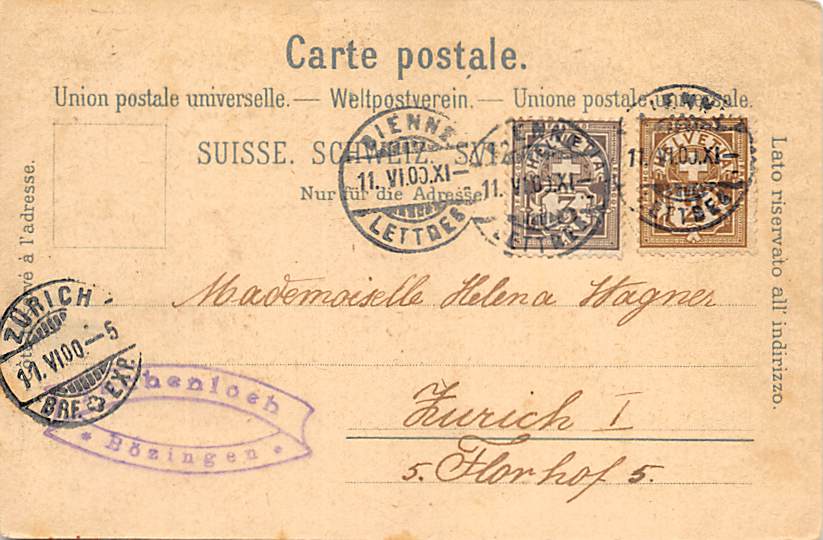 Carte postale.
Union postale universelle. — Weltpostverein. — Unione postale universale.
SUISSE. SCHWEIZ.
Nur für die Adresse.
BIENNE
11. VI.00.XI—
LETTRES
11. VI.00.XI—
LETTRES
HELVETIA
3
11. VI.00.XI—
LETTRES
HELVETIA
Lato riservato all' indirizzo.
à l'adresse.
Mademoiselle Helena Wagner
Zurich I
5. Florhof 5.
ZÜRICH
11. VI.00—5
BRF. EXP.
Bözingen